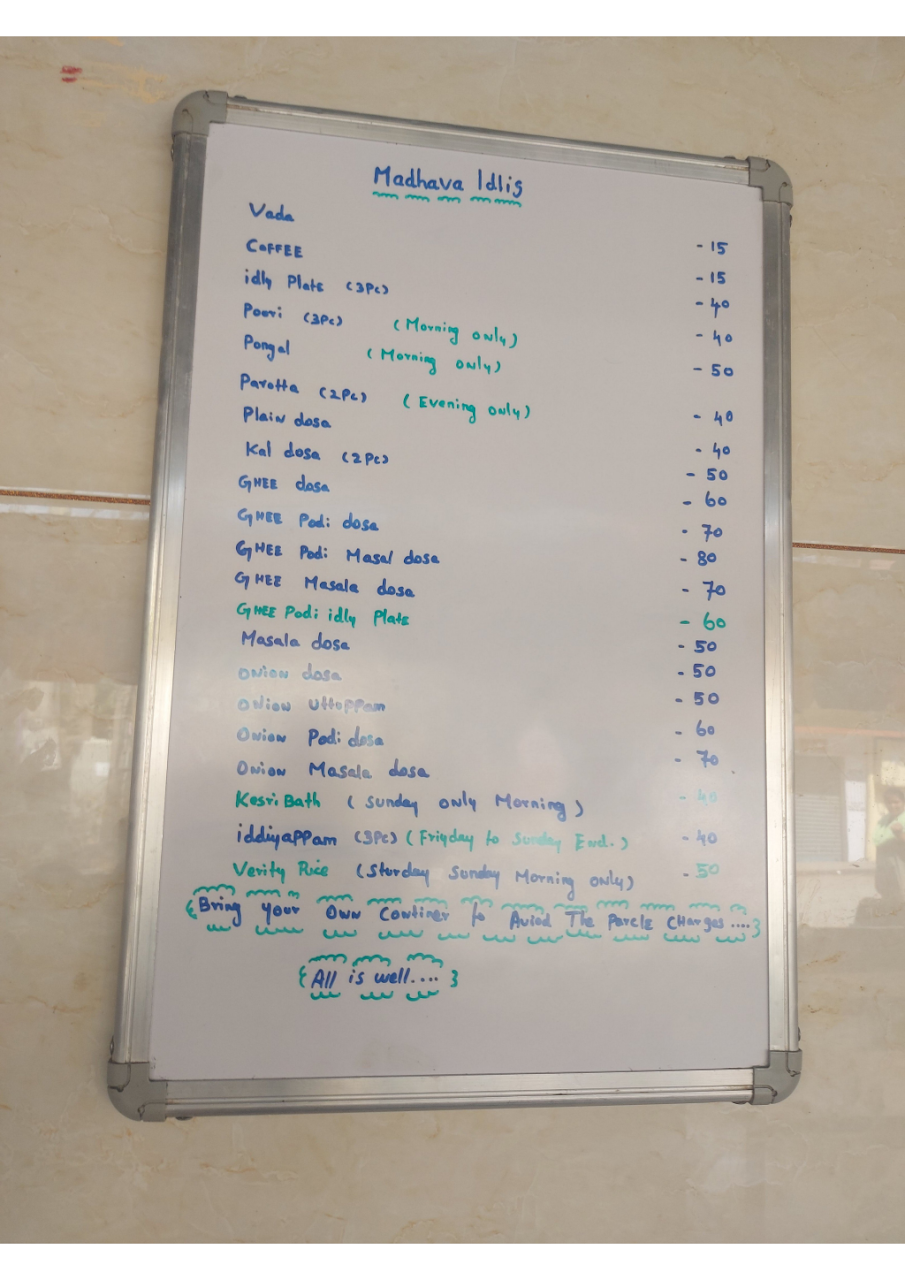 Madhava Idlis
Vada - 15
COFFEE - 15
idly Plate (3Pc) - 40
Poori (3Pc) (Morning only) - 40
Pongal (Morning only) - 50
Parotta (2Pc) (Evening only) - 40
Plain dosa - 40
Kal dosa (2Pc) - 50
GHEE dosa - 60
GHEE Podi dosa - 70
GHEE Podi Masal dosa - 80
GHEE Masala dosa - 70
GHEE Podi idly Plate - 60
Masala dosa - 50
ONION dosa - 50
ONION Uttappam - 50
ONION Podi dosa - 60
ONION Masala dosa - 70
Kesri Bath (Sunday only Morning) - 40
iddiyappam (3Pc) (Friyday to Sunday Eved.) - 40
Verity Rice (Sturday Sunday Morning only) - 50
{Bring your Own Continer to Aviod The Parcle CHarges ....}
{All is well....}